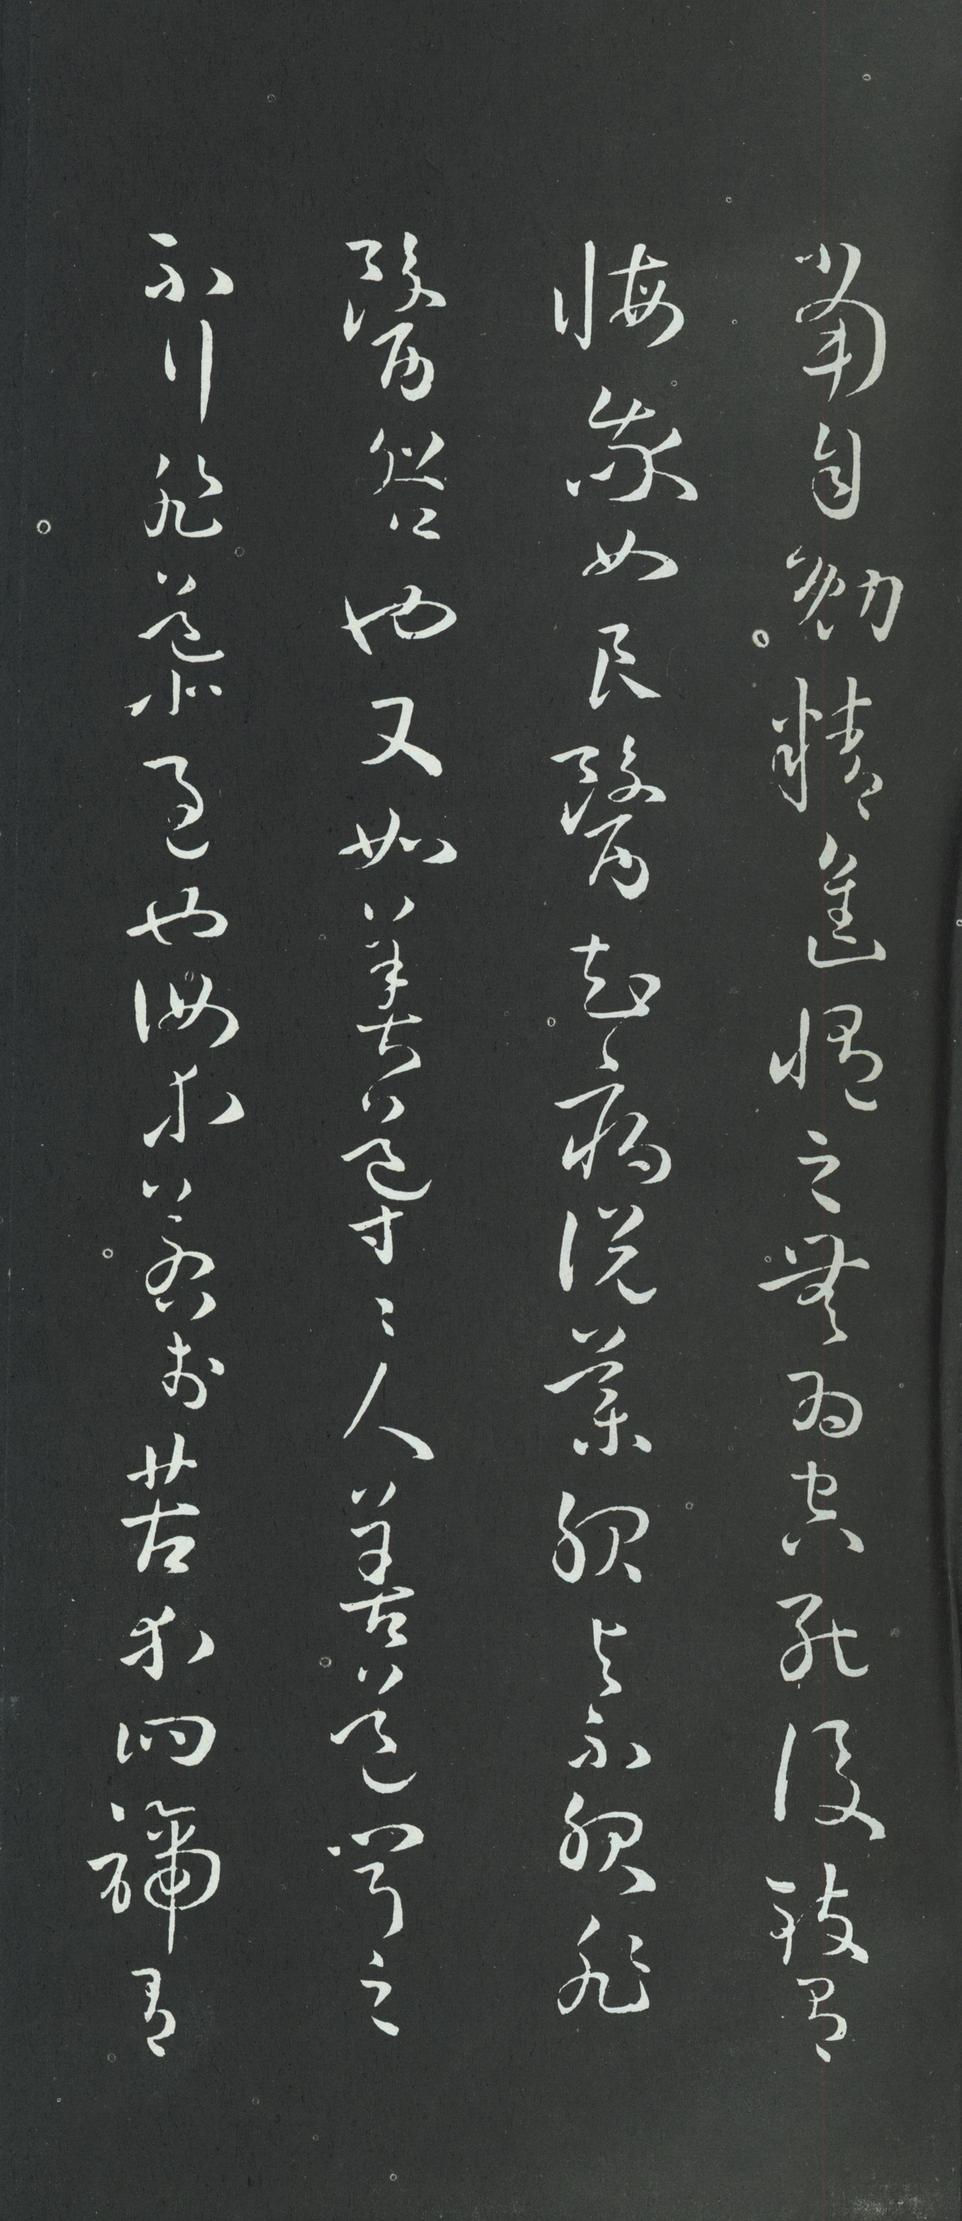 當自勉精進脩之無為空死後致有
悔我如良醫知病說藥服與不服非
醫咎也又如善導〻人善道聞之
不行非導過也汝等若於苦等四諦有